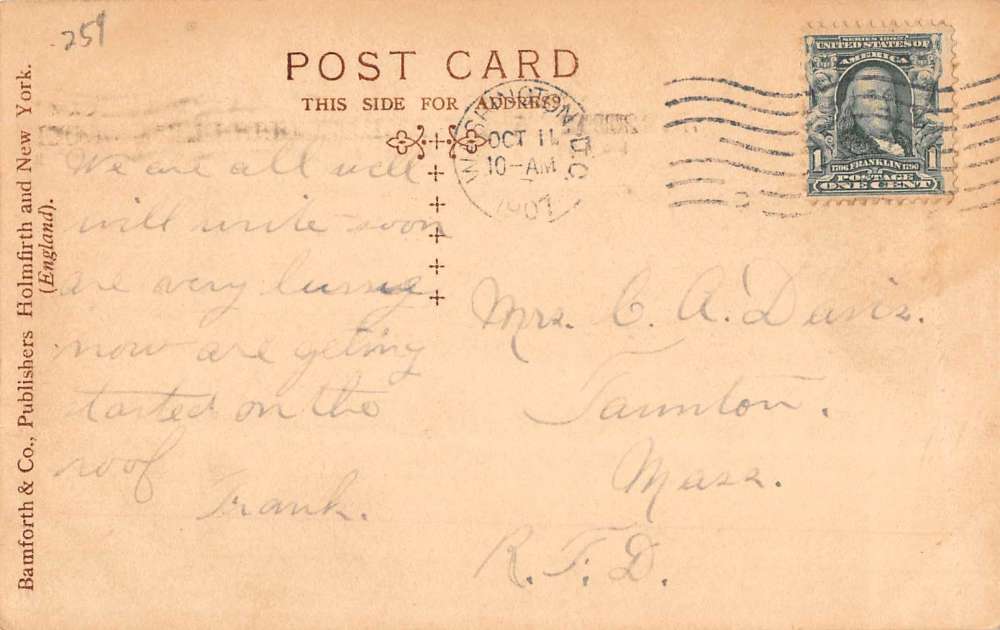 259
POST CARD
THIS SIDE FOR ADDRESS
WASHINGTON, D.C.
OCT 11
10-AM
1907
SERIES 1902
UNITED STATES OF
AMERICA
1 1
1706 FRANKLIN 1790
POSTAGE
ONE CENT
Bamforth & Co., Publishers Holmfirth and New York.
(England).
We are all well
will write soon
are very bussy
now are geting
started on the
roof
Frank.
Mrs. C. A. Davis.
Taunton.
Mass.
R. F. D.